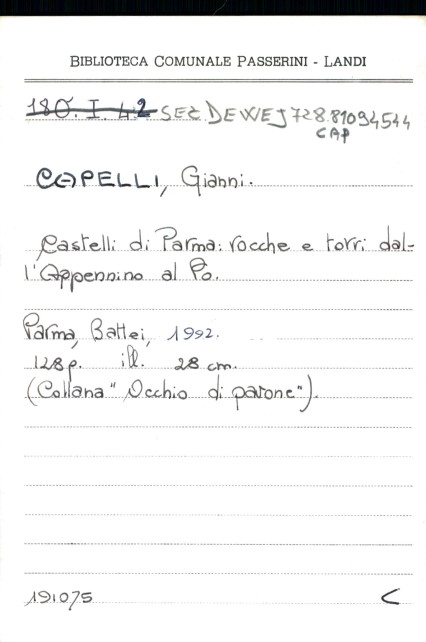 BIBLIOTECA COMUNALE PASSERINI - LANDI
180. I. 42 SEZ. DEWEY 728.81094544
CAP
CAPELLI, Gianni.
Castelli di Parma: rocche e torri dal-
l'Appennino al Po.
Parma, Battei, 1992.
128 p. ill. 28 cm.
(Collana "Occhio di pavone").
191075 C